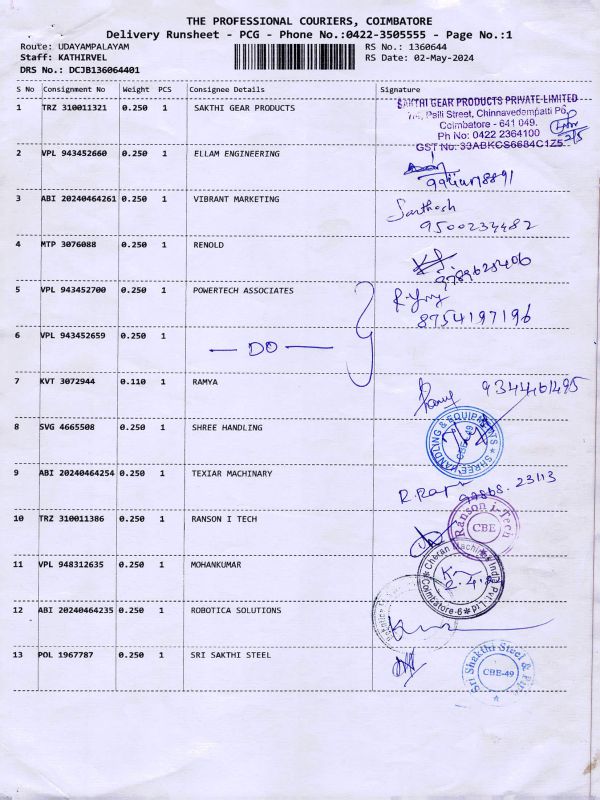 THE PROFESSIONAL COURIERS, COIMBATORE
Delivery Runsheet - PCG - Phone No.:0422-3505555 - Page No.:1
Route: UDAYAMPALAYAM RS No.: 1360644
Staff: KATHIRVEL RS Date: 02-May-2024
DRS No.: DCJB136064401
S No Consignment No Weight PCS Consignee Details Signature
1 TRZ 310011321 0.250 1 SAKTHI GEAR PRODUCTS
SAKTHI GEAR PRODUCTS PRIVATE LIMITED
Palli Street, Chinnavedampatti Po,
Coimbatore - 641 049.
Ph No: 0422 2364100
GST No: 33ABKCS6684C1Z5
2/5
2 VPL 943452660 0.250 1 ELLAM ENGINEERING
3 ABI 20240464261 0.250 1 VIBRANT MARKETING Santhosh
9500233482
4 MTP 3076088 0.250 1 RENOLD
9789625406
5 VPL 943452700 0.250 1 POWERTECH ASSOCIATES
8754197196
6 VPL 943452659 0.250 1 — DO —
7 KVT 3072944 0.110 1 RAMYA 9344461495
8 SVG 4665508 0.250 1 SHREE HANDLING SHREE HANDLING & EQUIPMENTS CBE-49
9 ABI 20240464254 0.250 1 TEXIAR MACHINARY
99868 23113
10 TRZ 310011386 0.250 1 RANSON I TECH Ranson i-Tech CBE
11 VPL 948312635 0.250 1 MOHANKUMAR Cheran Machines India Pvt. Ltd Coimbatore-6
12 ABI 20240464235 0.250 1 ROBOTICA SOLUTIONS
13 POL 1967787 0.250 1 SRI SAKTHI STEEL Sri Shakthi Steel & Pipe CBE-49